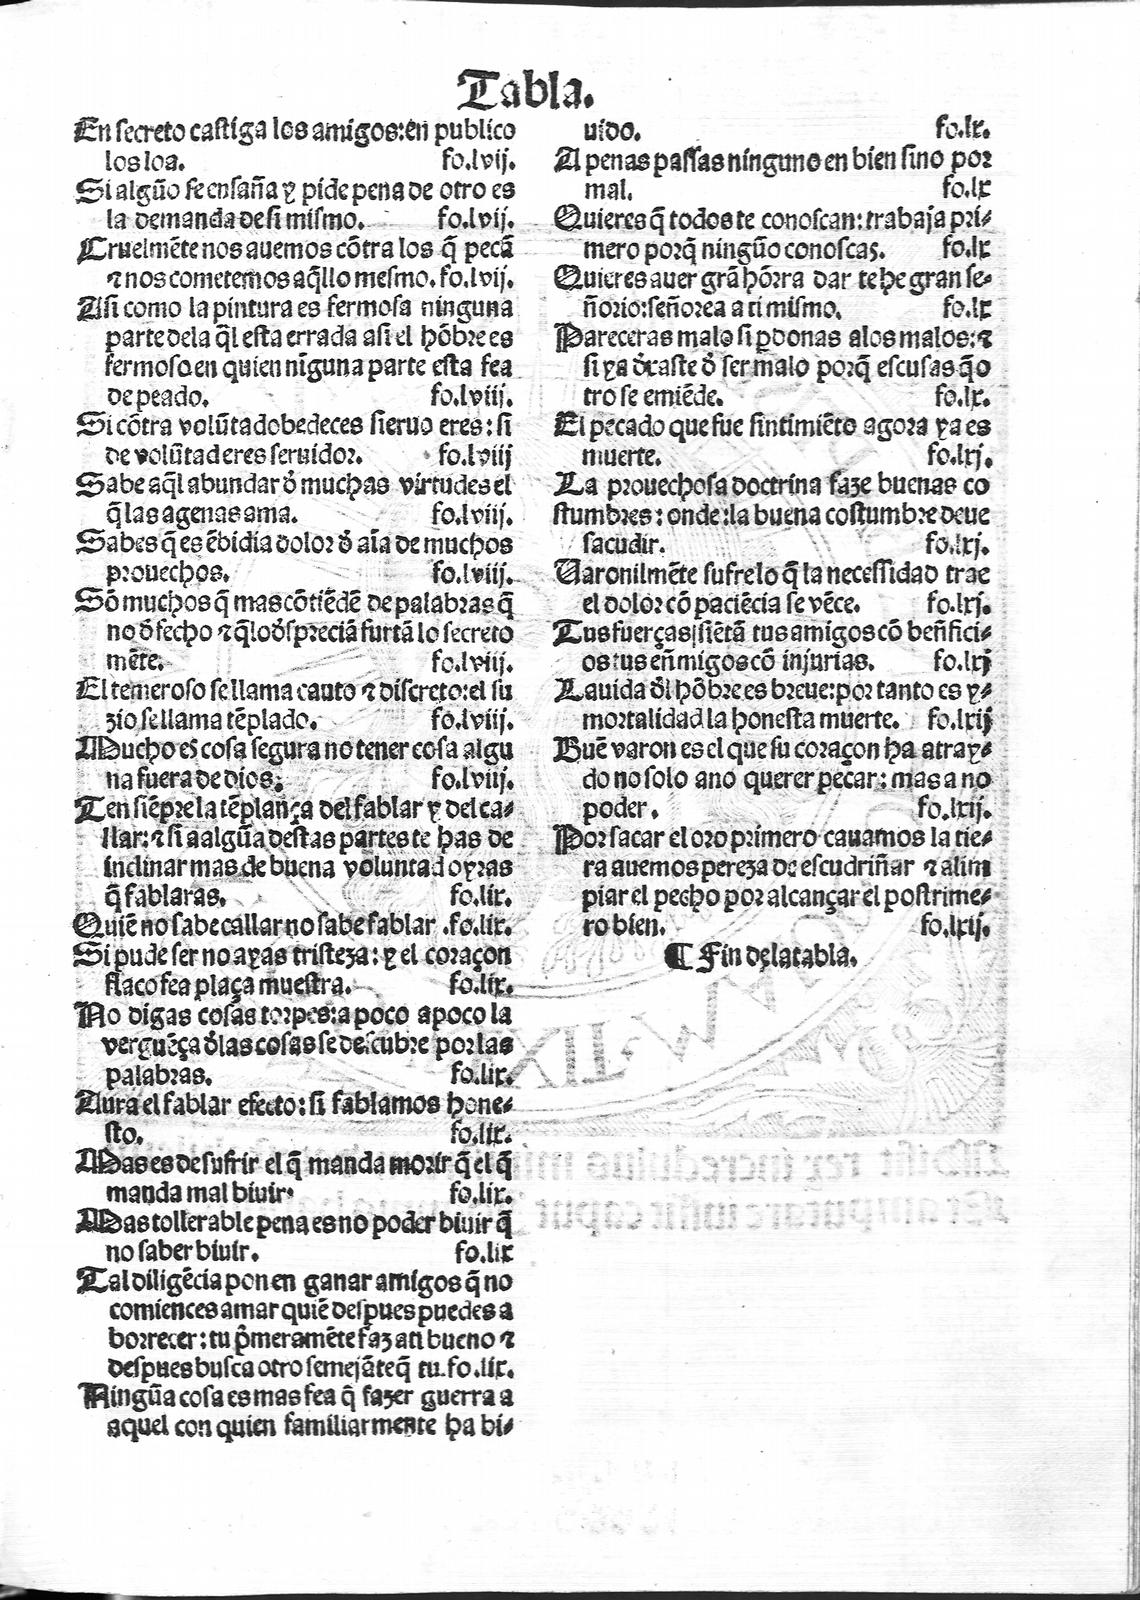 Tabla.
En secreto castiga los amigos:en publico
los loa. fo.lvij.
Si algũo se ensaña y pide pena de otro es
la demanda de si mismo. fo.lvij.
Cruelmẽte nos auemos cõtra los q̃ pecã
⁊ nos cometemos aq̃llo mesmo. fo.lvij.
Asi como la pintura es fermosa ninguna
parte dela q̃l esta errada asi el hõbre es
fermoso en quien ninguna parte esta fea
de peado. fo.lviij.
Si cõtra volũtad obedeces sieruo eres: si
de volũtad eres seruidor. fo.lviij
Sabe aq̃l abundar d̃ muchas virtudes el
q̃ las agenas ama. fo.lviij.
Sabes q̃ es ẽbidia dolor d̃ aĩa de muchos
prouechos. fo.lviij.
Sõ muchos q̃ mas cõtiẽdẽ de palabras q̃
no d̃ fecho ⁊ q̃lo d̃spreciã furtã lo secreto
mẽte. fo.lviij.
El temeroso se llama cauto ⁊ discreto:el su
zio se llama tẽplado. fo.lviij.
Mucho es cosa segura no tener cosa algu
na fuera de dios. fo.lviij.
Ten siẽpre la tẽplança del fablar y del ca-
llar: ⁊ si a algũa destas partes te has de
inclinar mas de buena voluntad oyras
q̃ fablaras. fo.lix.
Quiẽ no sabe callar no sabe fablar .fo.lix.
Si pude ser no ayas tristeza: y el coraçon
flaco fea plaça muestra. fo.lix.
No digas cosas torpes:a poco a poco la
verguẽça d̃las cosas se descubre por las
palabras. fo.lix.
Aura el fablar efecto: si fablamos hone-
sto. fo.lix.
Mas es de sufrir el q̃ manda morir q̃ el q̃
manda mal biuir. fo.lix.
Mas tollerable pena es no poder biuir q̃
no saber biuir. fo.lix
Tal diligẽcia pon en ganar amigos q̃ no
comiences amar quiẽ despues puedes a
borrecer: tu p̃meramẽte faz ati bueno ⁊
despues busca otro semejãte q̃ tu. fo.lix.
Ningũa cosa es mas fea q̃ fazer guerra a
aquel con quien familiarmente ha bi-
uido. fo.lx.
Apenas passas ninguno en bien sino por
mal. fo.lx
Quieres q̃ todos te conoscan: trabaja pri-
mero porq̃ ningũo conoscas. fo.lx
Quieres auer grã hõrra dar te he gran se-
ñorio:señorea a ti mismo. fo.lx
Pareceras malo si ꝑdonas alos malos: ⁊
si ya d̃xaste d̃ ser malo porq̃ escusas q̃ o
tro se emiẽde. fo.lx.
El pecado que fue sintimiẽto agora ya es
muerte. fo.lxj.
La prouechosa doctrina faze buenas co
stumbres: onde:la buena costumbre deue
sacudir. fo.lxj.
Uaronilmẽte sufrelo q̃ la necessidad trae
el dolor cõ paciẽcia se vẽce. fo.lxj.
Tus fuerças siẽtã tus amigos cõ beñfici-
os:tus eñmigos cõ injurias. fo.lxj
La uida d̃l hõbre es breue: por tanto es y-
mortalidad la honesta muerte. fo.lxij
Buẽ varon es el que su coraçon ha atray-
do no solo ano querer pecar: mas a no
poder. fo.lxij.
Por sacar el oro primero cauamos la tie-
ra auemos pereza de escudriñar ⁊ alim
piar el pecho por alcançar el postrime-
ro bien. fo.lxij.
¶ Fin dela tabla.